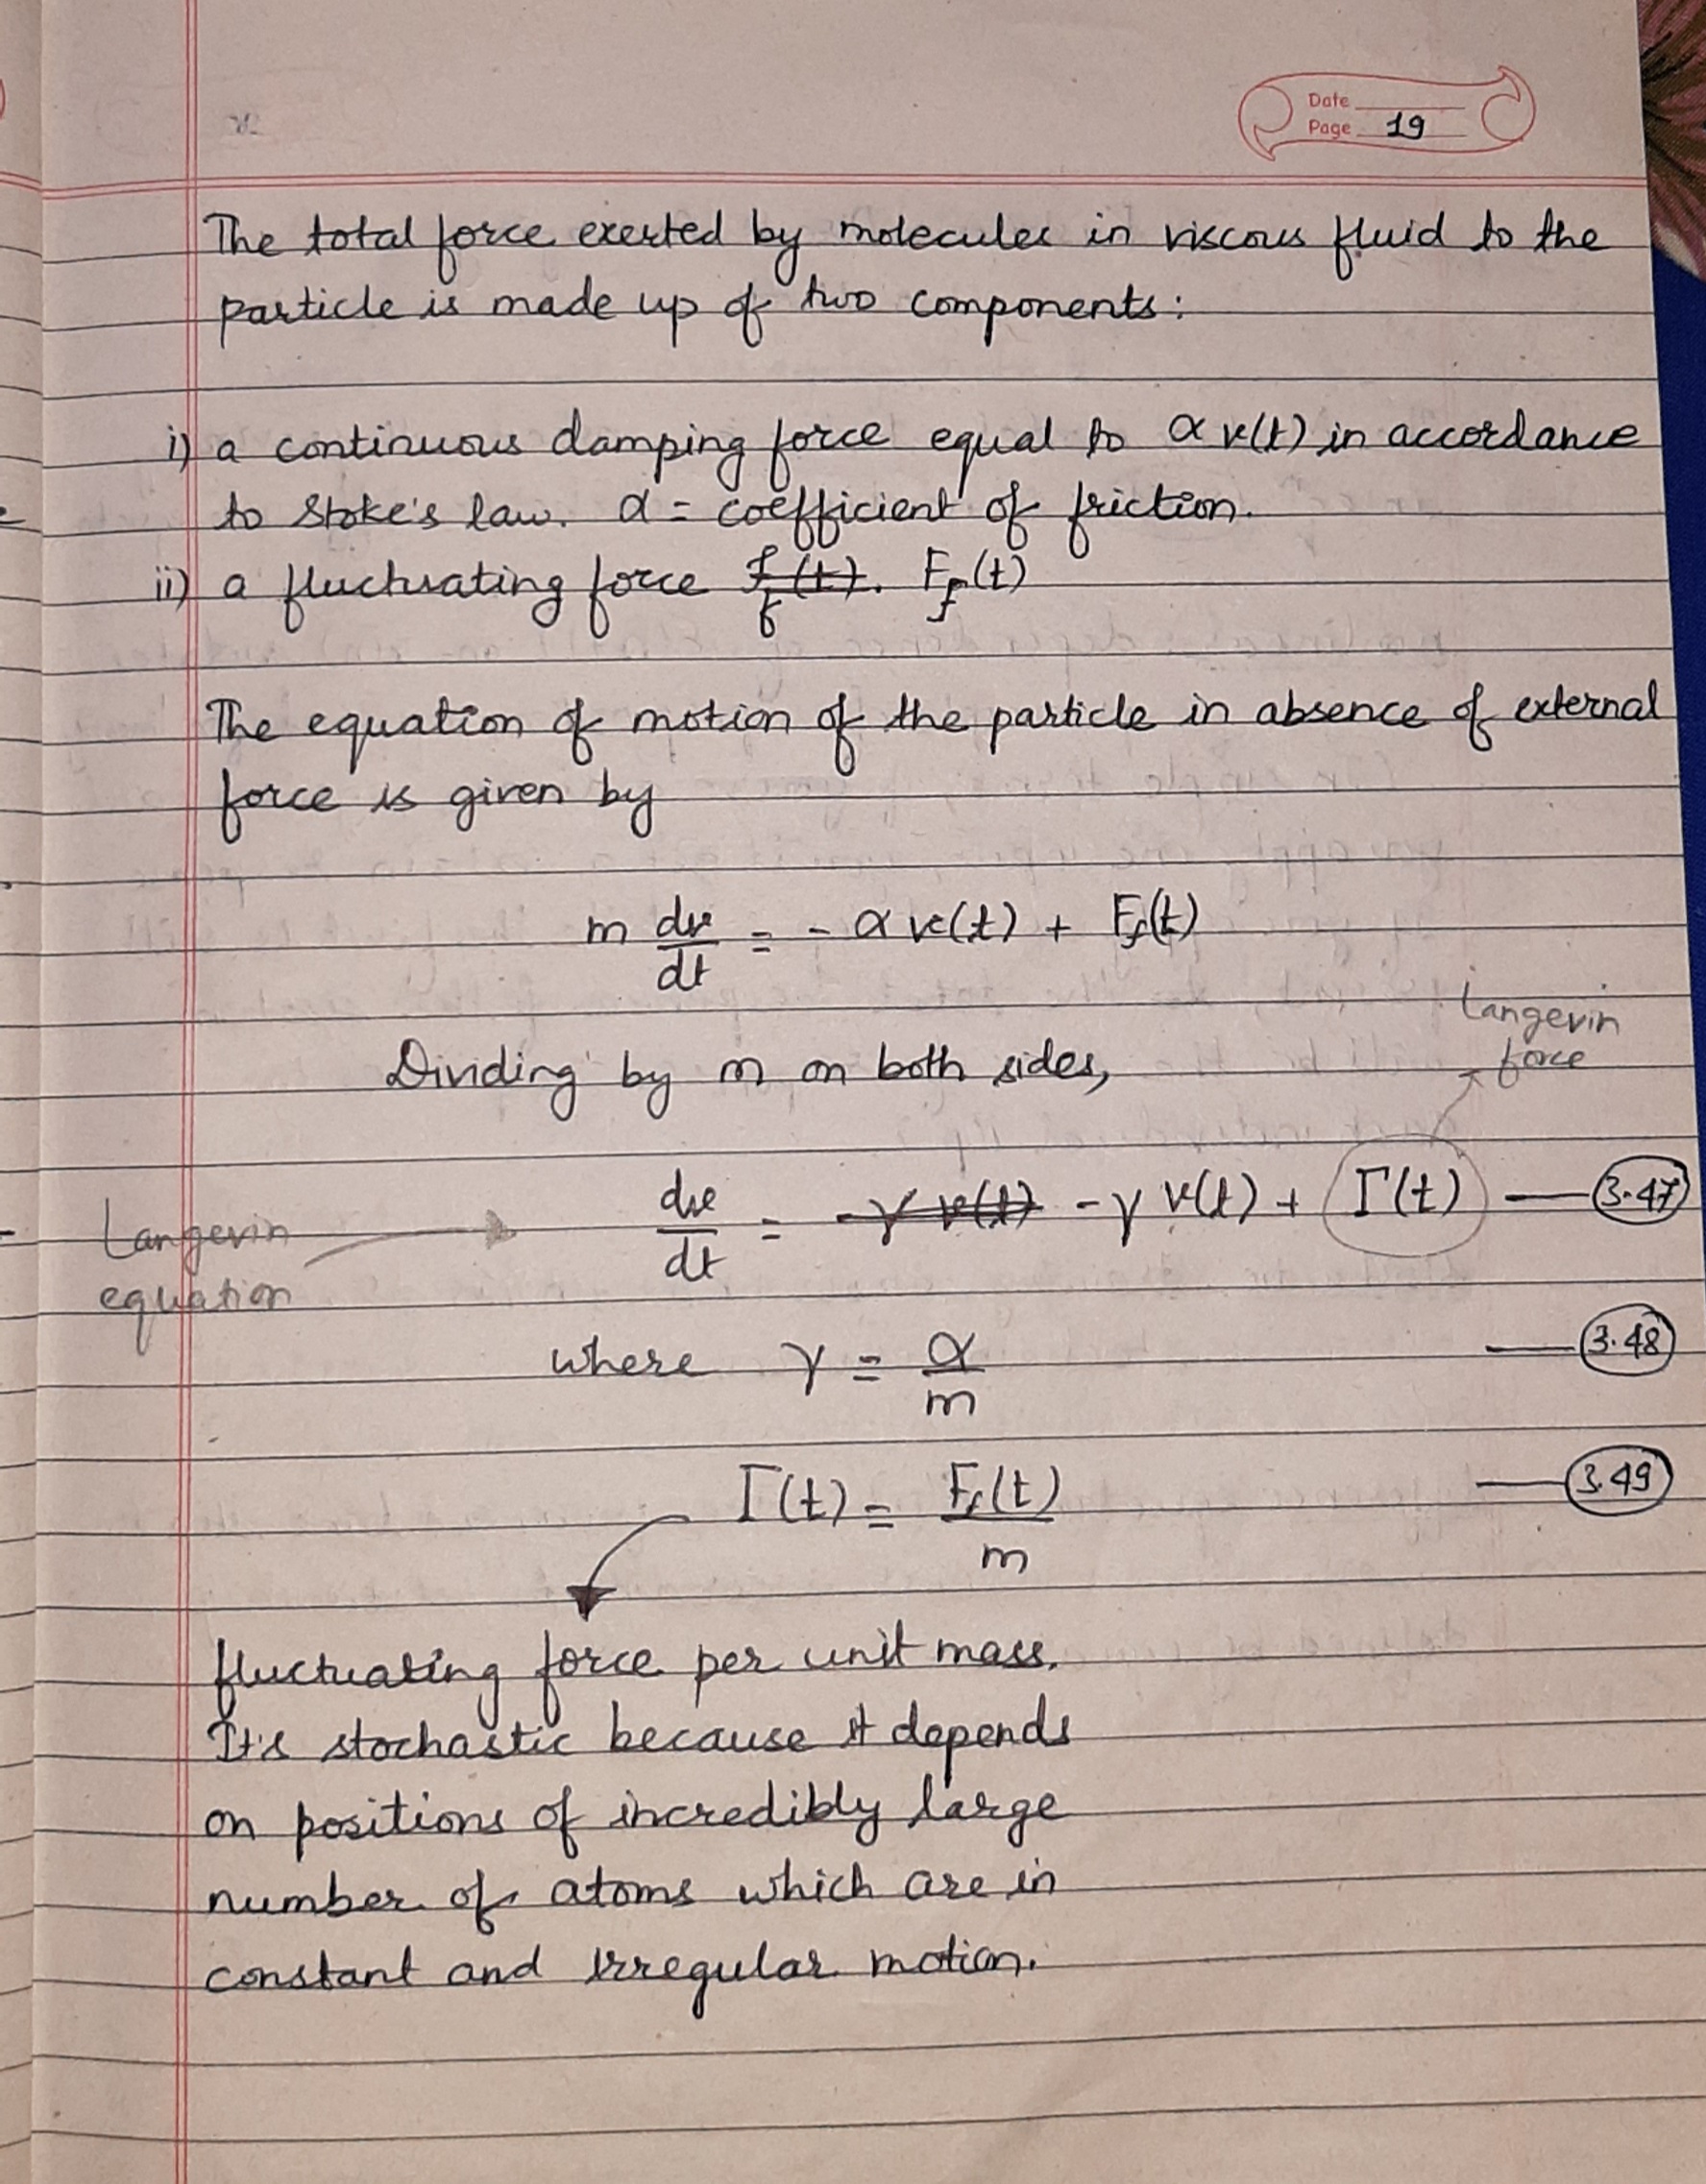 Date
Page 19
The total force exerted by molecules in viscous fluid to the
particle is made up of two components:
i) a continuous damping force equal to α v(t) in accordance
to Stoke's law. α = coefficient of friction.
ii) a fluctuating force F_f(t)
The equation of motion of the particle in absence of external
force is given by
m dv/dt = - α v(t) + F_f(t)
Langevin
force
Dividing by m on both sides,
dv/dt = -γ v(t) - γ v(t) + Γ(t) — 3.47
Langevin
equation
where γ = α/m — 3.48
Γ(t) = F_f(t)/m — 3.49
fluctuating force per unit mass.
It's stochastic because it depends
on positions of incredibly large
number of atoms which are in
constant and irregular motion.